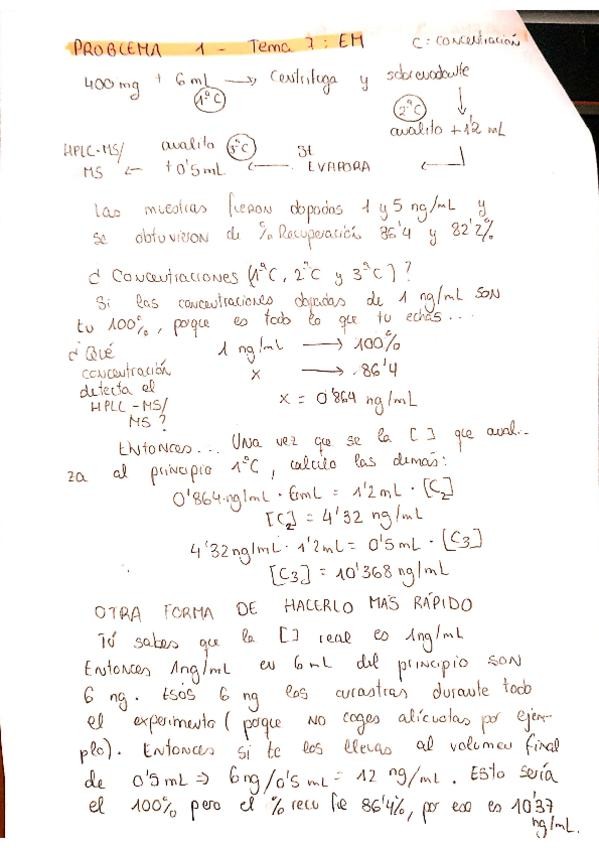 PROBLEMA 1 - Tema 7: EM C: concentración
400 mg + 6 mL → Centrifuga y sobrenadante
1ªC 2ªC
analito + 1'2 mL
HPLC-MS/ analito 3ªC SE
MS ← + 0'5 mL ← EVAPORA ←
Las muestras fueron dopadas 1 y 5 ng/mL y
se obtuvieron de % Recuperación 86'4 y 82'2%
¿Concentraciones (1ªC, 2ªC y 3ªC)?
Si las concentraciones dopadas de 1 ng/mL son
tu 100%, porque es todo lo que tu echas...
¿Qué 1 ng/mL → 100%
concentración x → 86'4
detecta el
HPLC-MS/ x = 0'864 ng/mL
MS?
Entonces... Una vez que se la [ ] que anali-
za al principio 1ªC, calculo las demás:
0'864 ng/mL · 6mL = 1'2 mL · [C2]
[C2] = 4'32 ng/mL
4'32 ng/mL · 1'2 mL = 0'5 mL · [C3]
[C3] = 10'368 ng/mL
OTRA FORMA DE HACERLO MAS RÁPIDO
Tú sabes que la [ ] real es 1ng/mL
Entonces 1ng/mL en 6 mL del principio son
6 ng. Esos 6 ng los arrastras durante todo
el experimento (porque NO coges alícuotas por ejem-
plo). Entonces si te los llevas al volumen final
de 0'5 mL ⇒ 6ng/0'5 mL = 12 ng/mL. Esto sería
el 100% pero el % recu fue 86'4%, por eso es 10'37
ng/mL.